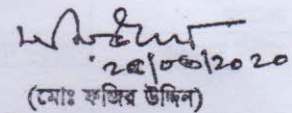 ২৫/০৩/২০২০
(মোঃ ফজির উদ্দিন)